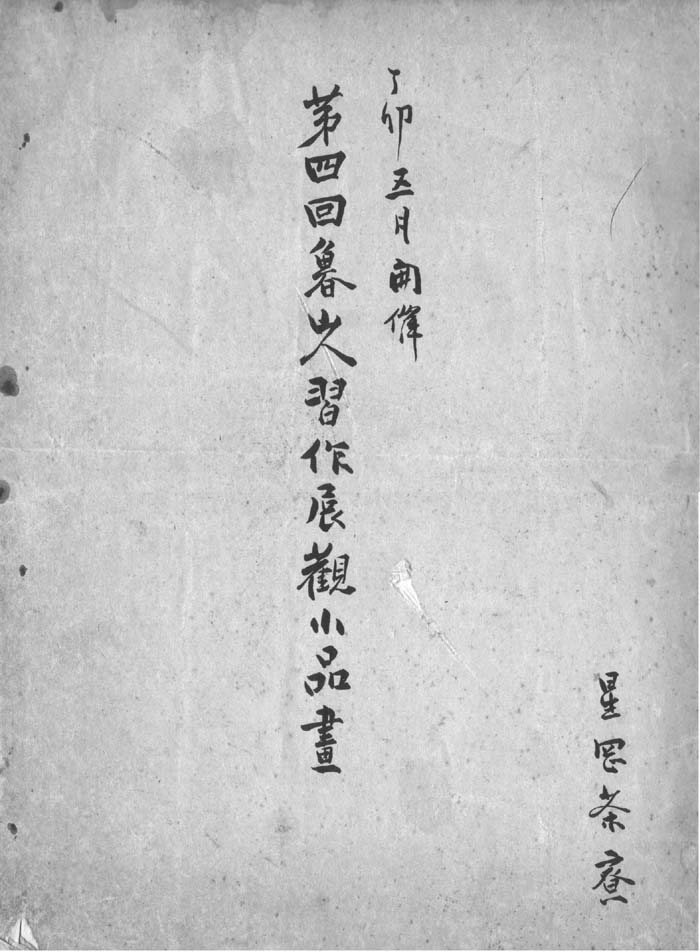 星岡茶寮
丁卯五月開催
第四回魯山人習作展觀小品畫